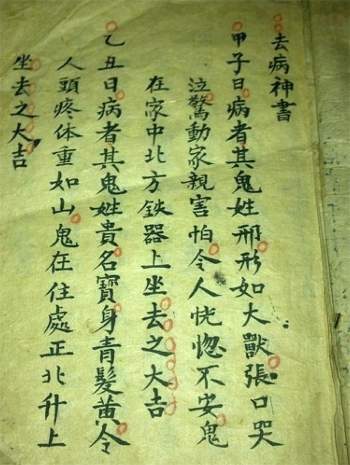 去病神書
甲子日病者其鬼姓邢形如大獸張口哭
泣驚動家親害怕令人恍惚不安鬼
在家中北方鉄器上坐去之大吉
乙丑日病者其鬼姓貴名寶身青髮黃令
人頭疼体重如山鬼在住處正北升上
坐去之大吉